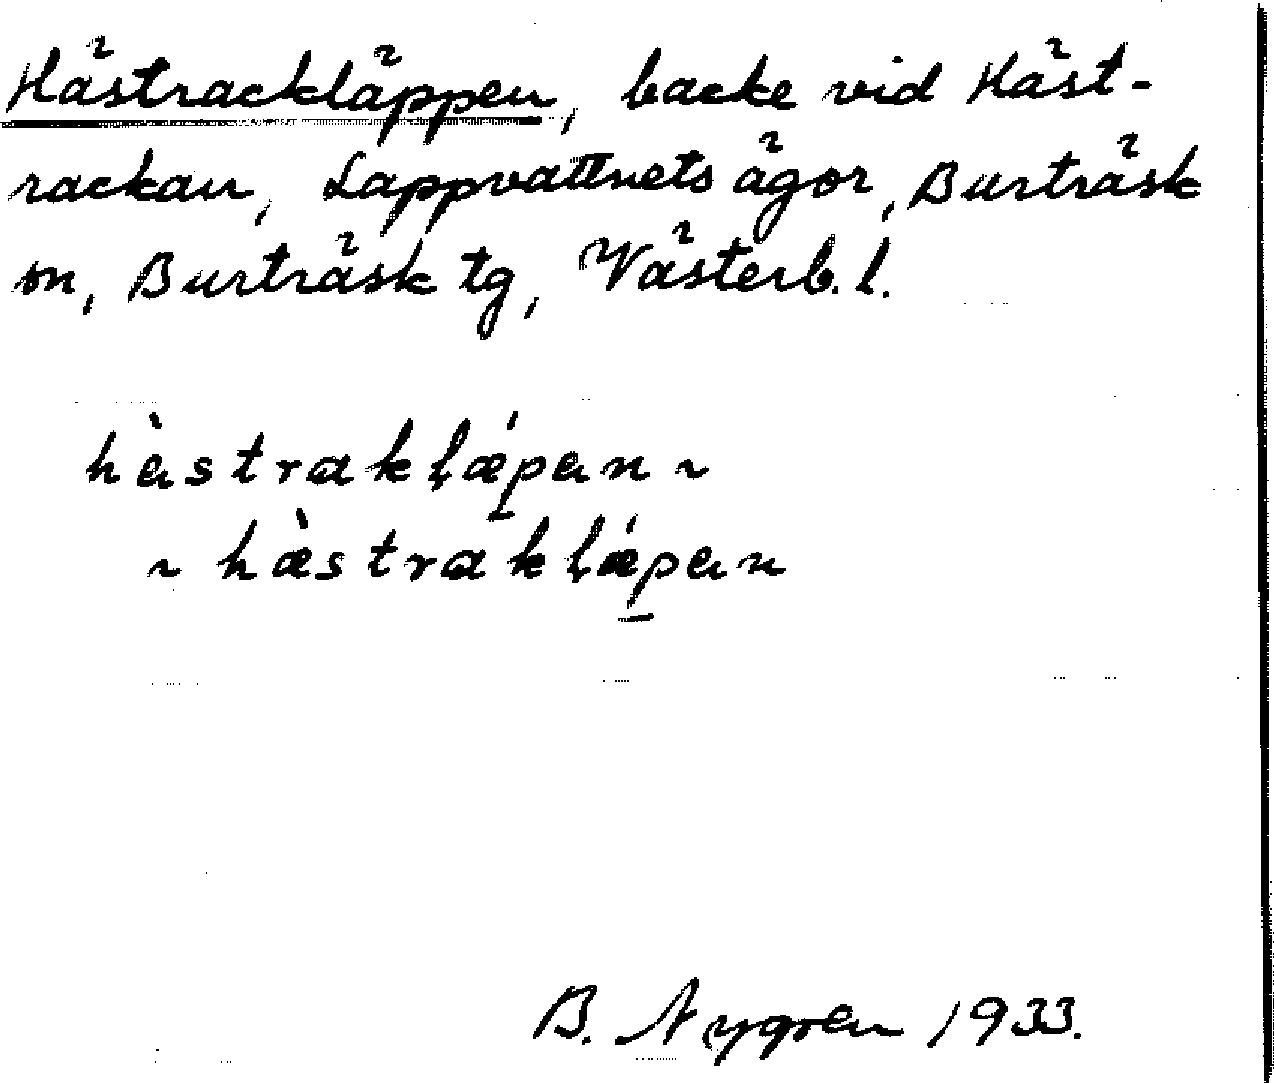 Hästrackläppen, backe vid Häst-
rackan, Lappvattnets ägor, Burträsk
sn, Burträsk tg, Västerb. l.
hàstraklǽpan ~
~ hæ̀straklǽpan
B. Nygren 1933.